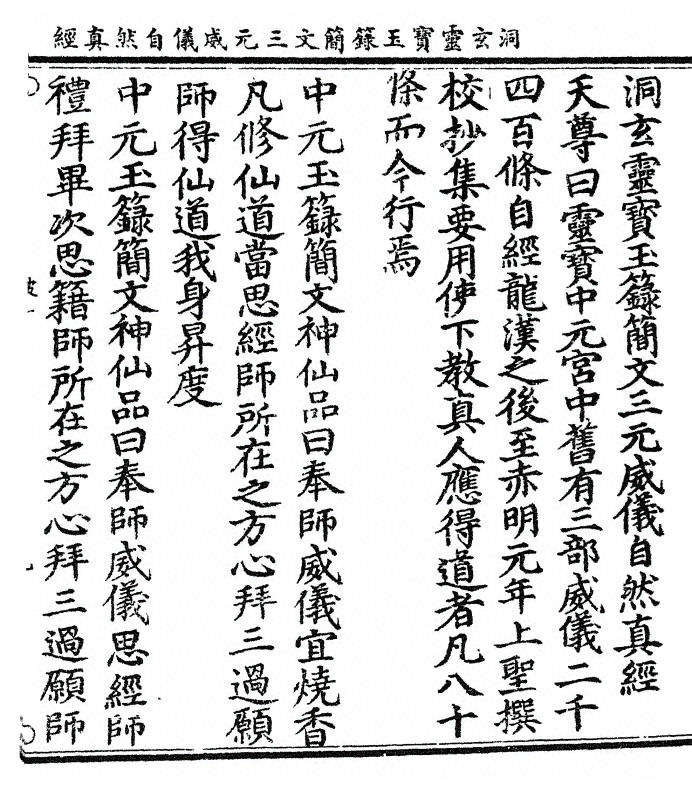 洞玄靈寶玉籙簡文三元威儀自然真經
洞玄靈寶玉籙簡文三元威儀自然真經
天尊曰靈寶中元宮中舊有三部威儀二千
四百條自經龍漢之後至赤明元年上聖撰
校抄集要用使下教真人應得道者凡八十
條而令行焉
中元玉籙簡文神仙品曰奉師威儀宜燒香
凡修仙道當思經師所在之方心拜三過願
師得仙道我身昇度
中元玉籙簡文神仙品曰奉師威儀思經師
禮拜畢次思籍師所在之方心拜三過願師